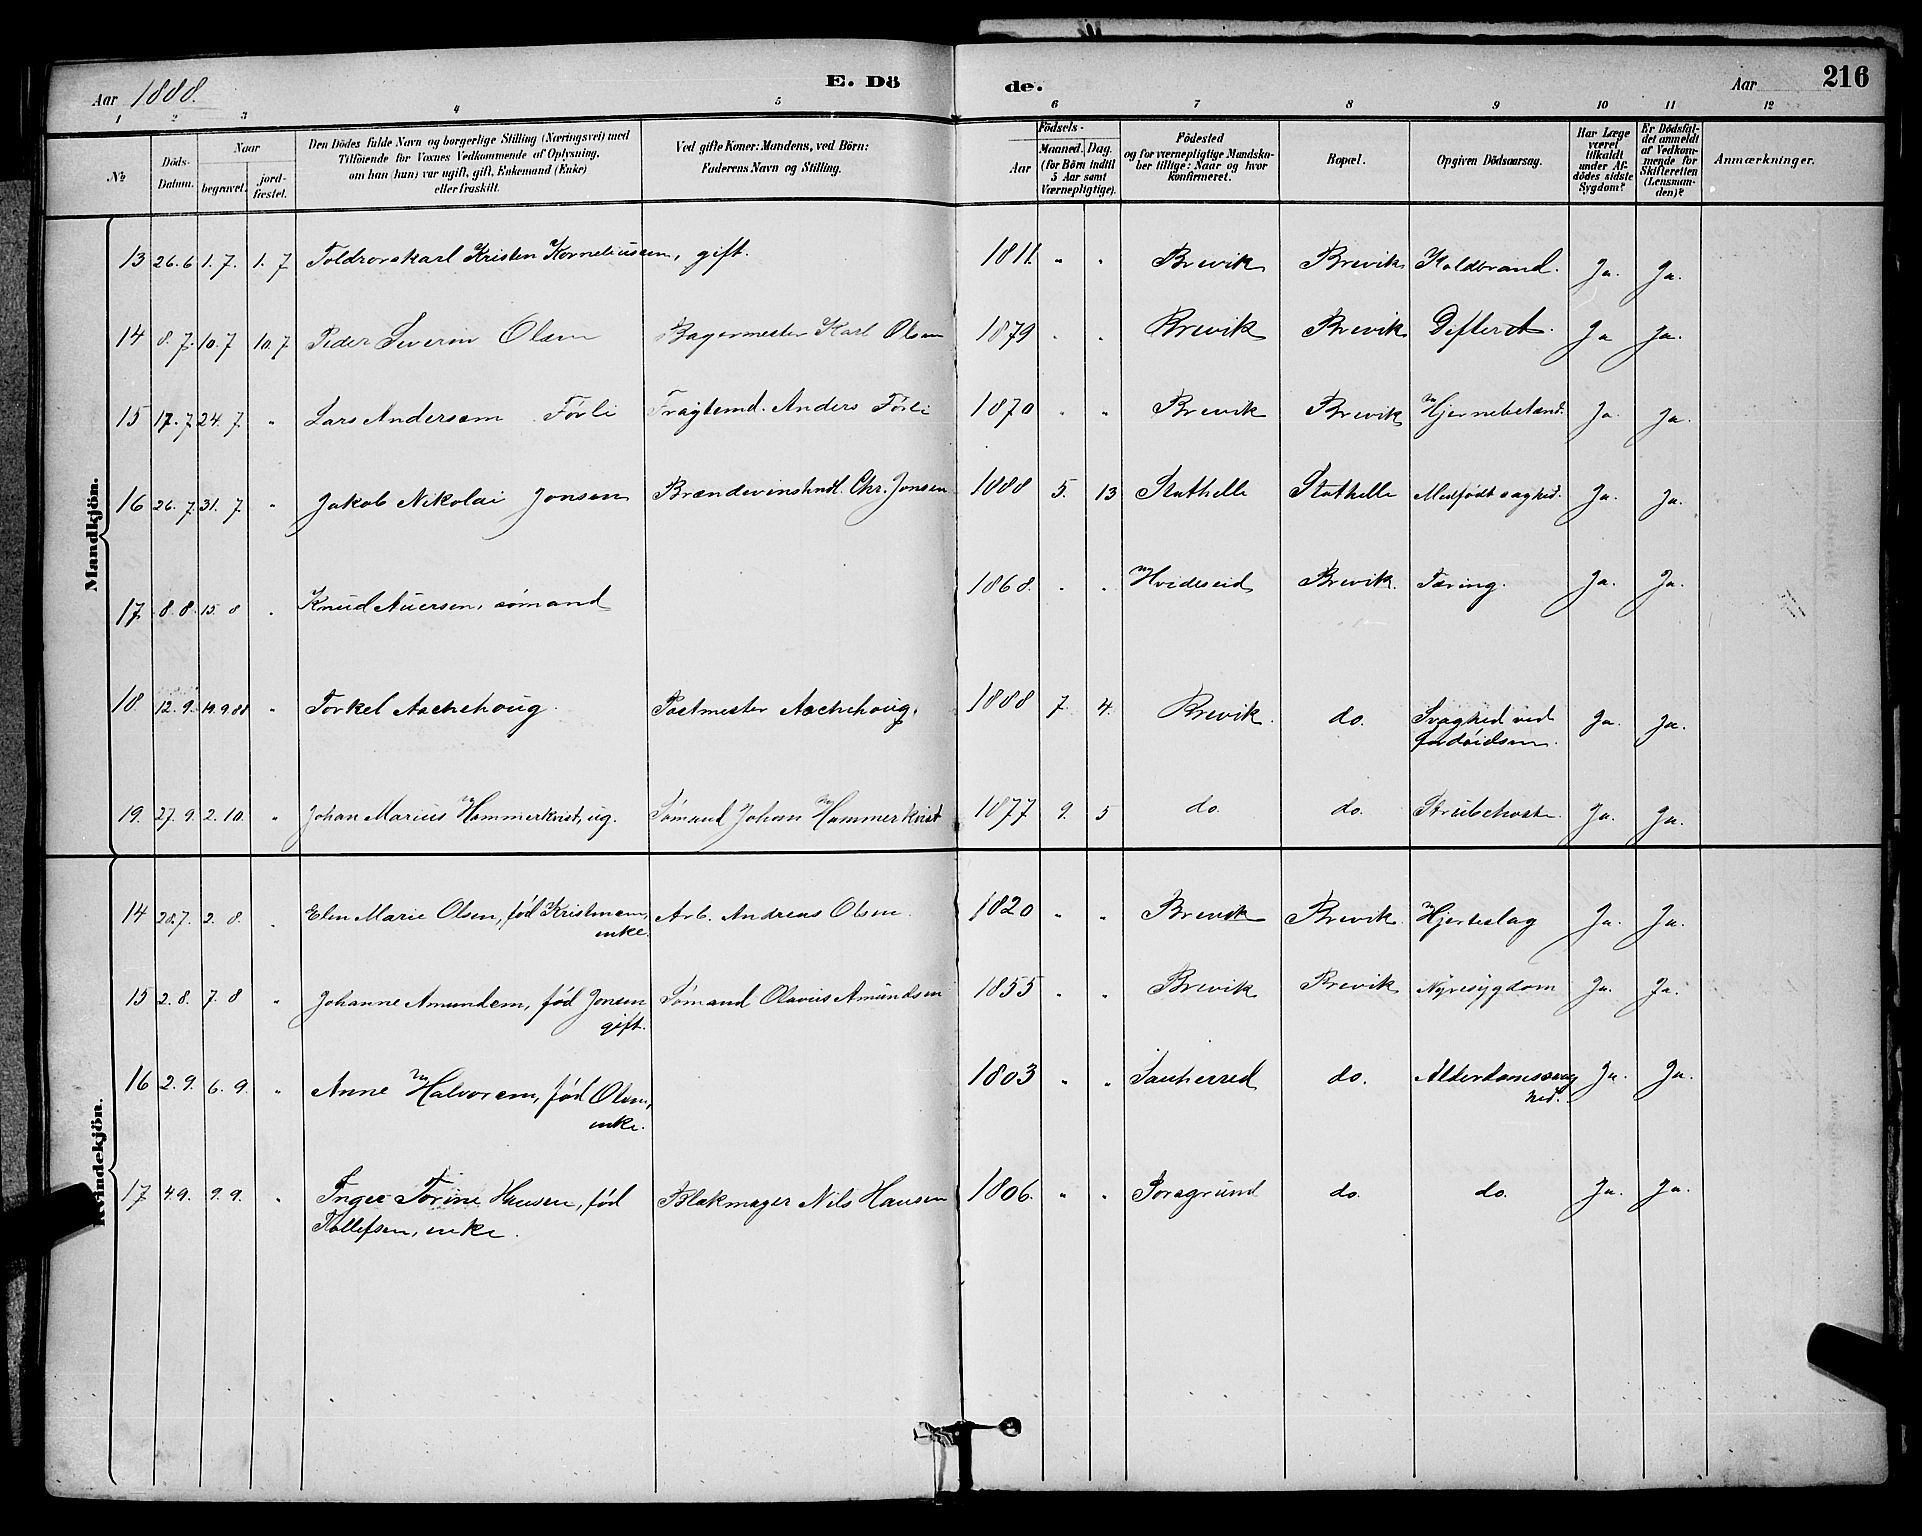 Aar 1888. E. Dö de. Aar 216
1 2 3 4 5 6 7 8 9 10 11 12
No
Döds-Datum.
Naar
begravet.
jord-fæstet.
Den Dödes fulde Navn og borgerlige Stilling (Næringsvei) med
Tilföiende for Voxnes Vedkommende af Oplysning,
om han (hun) var ugift, gift, Enkemand (Enke)
eller fraskilt.
Ved gifte Koner: Mandens, ved Börn:
Faderens Navn og Stilling.
Födsels-
Aar
Maaned. Dag.
(for Börn indtil
5 Aar samt
Værnepligtige).
Födested
og for værnepligtige Mandska-
ber tillige: Naar og hvor
konfirmeret.
Bopæl.
Opgiven Dödsaarsag.
Har Læge
været
tilkaldt
under Af-
dödes sidste
Sygdom?
Er Dödsfal-
det anmeldt
af Vedkom-
mende for
Skifteretten
(Lensman-
den)?
Anmærkninger.
Mandkjön.
13 26.6 1.7. 1.7 Toldrorskarl Kristen Korneliussen, gift. 1811. " " Brevik Brevik Koldbrand. Ja. Ja.
14 8.7. 10.7 10.7 Peder Severin Olsen Bagermester Karl Olsen 1879 " " Brevik Brevik Difterit. Ja Ja.
15 17.7 24.7. " Lars Andersen Førli Fragtemd. Anders Førli 1870 " " Brevik Brevik Hjernebetænd. Ja. Ja.
16 26.7. 31.7 " Jakob Nikolai Jonsen Brændevinshndl. Chr. Jonsen 1888 5. 13 Stathelle Stathelle Medfødt svaghed. Ja. Ja.
17. 8.8. 15.8 " Knud Auersen, sømand 1868. " " Hvideseid Brevik. Tæring. Ja. Ja.
18 12.9. 19.9.88 " Torkel Aschehoug. Postmester Aschehoug. 1888 7. 4. Brevik. do. Svaghed ved
fødselen. Ja. Ja.
19. 27.9. 2.10. " Johan Marius Hammerkvist, ug. Sømand Johan Hammerkvist 1877 9. 5 do. do. Strubehoste Ja. Ja.
Kvindekjön.
14 28.7. 2.8. " Elen Marie Olsen, fød Kristensen, Arb. Andreas Olsen. 1820 " " Brevik Brevik. Hjerteslag Ja. Ja.
enke.
15 2.8. 7.8 " Johanne Amundsen, fød Jonsen Sømand Olavus Amundsen 1855 " " Brevik Brevik Nyresygdom Ja. Ja.
gift.
16 2.9. 6.9. " Anne Halvorsen, fød Olsen, 1803 " " Sauherred do. Alderdomssvag
hed. Ja. Ja.
enke.
17 4.9. 9.9. " Inger Torine Hansen, fød Blokmager Nils Hansen 1806. " " Porsgrund do. do. Ja. Ja.
Rollefsen, enke.